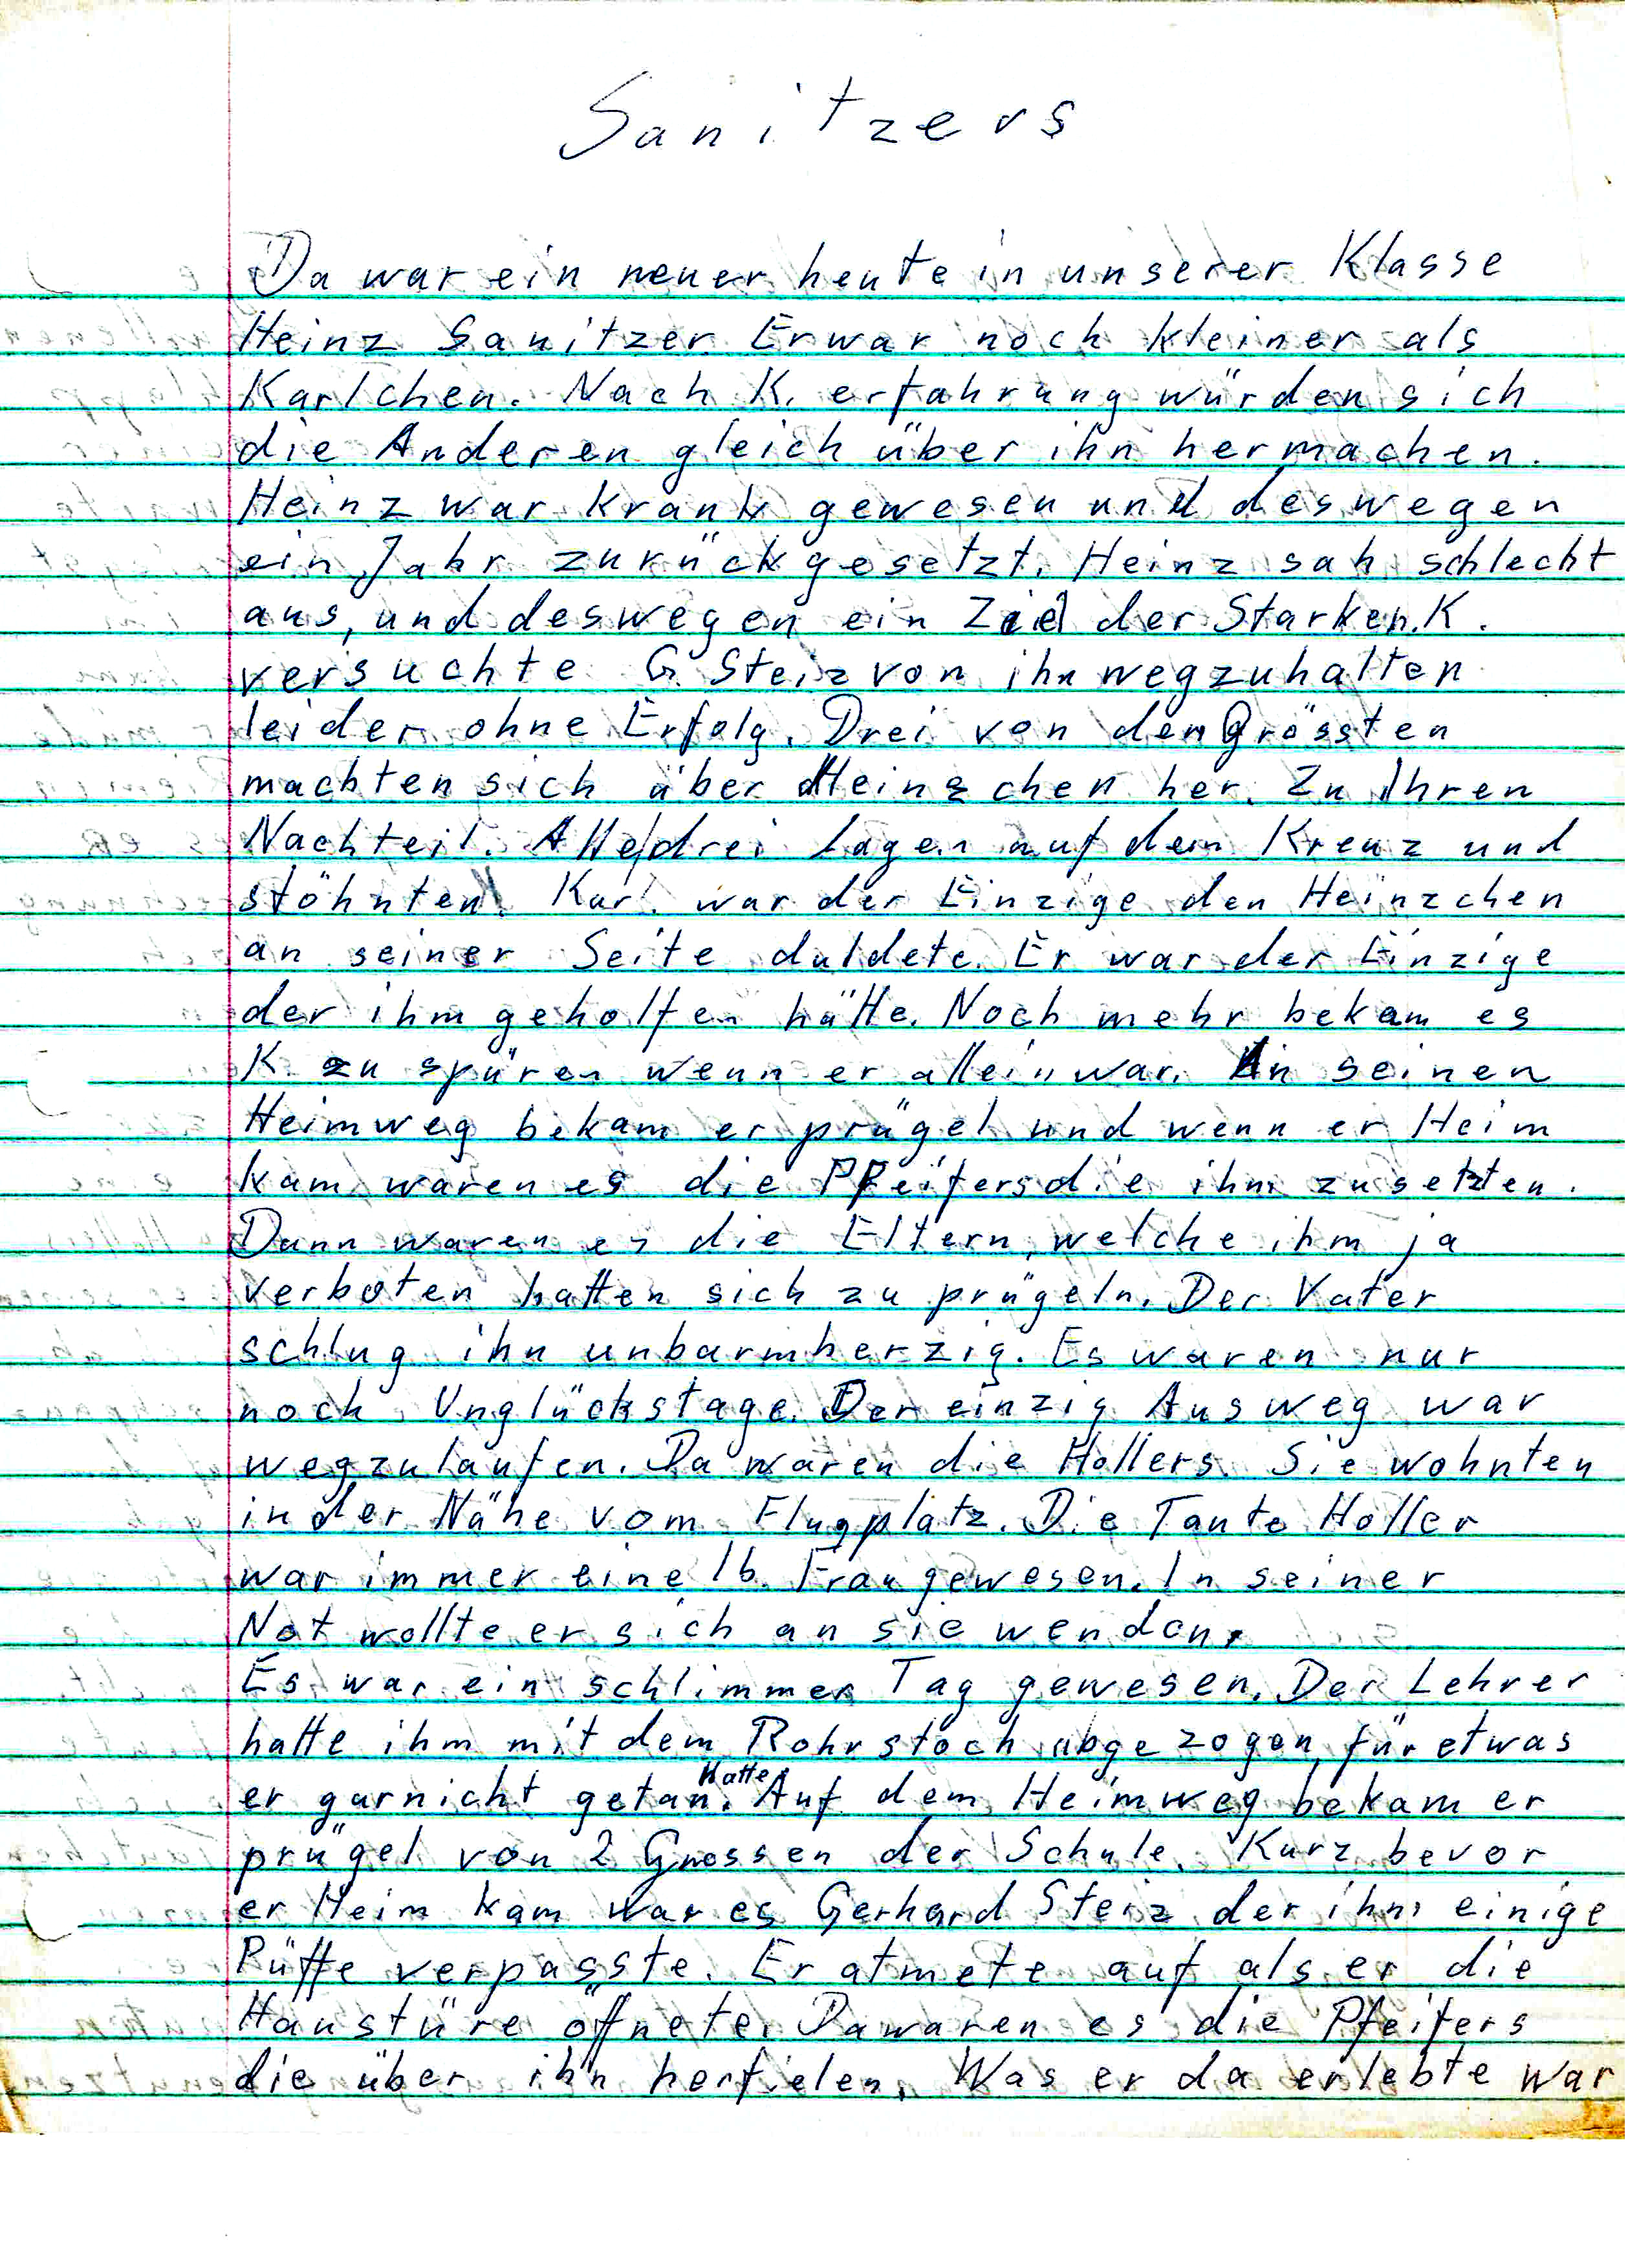 Sanitzers
Da war ein neuer heute in unserer Klasse
Heinz Sanitzer. Er war noch kleiner als
Karlchen. Nach K. erfahrung würden sich
die Anderen gleich über ihn hermachen.
Heinz war krank gewesen und deswegen
ein Jahr zurückgesetzt. Heinz sah schlecht
aus, und deswegen ein Ziel der Starken. K.
versuchte G. Steiz von ihn wegzuhalten
leider ohne Erfolg. Drei von den Grössten
machten sich über Heinzchen her. Zu Ihren
Nachteil. Alle drei lagen auf dem Kreuz und
stöhnten. Karl. war der Einzige den Heinzchen
an seiner Seite duldete. Er war der Einzige
der ihm geholfen hätte. Noch mehr bekam es
K. zu spüren wenn er allein war. An seinen
Heimweg bekam er prügel und wenn er Heim
kam waren es die Pfeifers die ihm zusetzten.
Dann waren es die Eltern, welche ihm ja
verboten hatten sich zu prügeln. Der Vater
schlug ihn unbarmherzig. Es waren nur
noch Unglückstage. Der einzig Ausweg war
wegzulaufen. Da waren die Hollers. Sie wohnten
in der Nähe vom Flugplatz. Die Tante Holler
war immer eine lb. Frau gewesen. In seiner
Not wollte er sich an sie wenden.
Es war ein schlimmer Tag gewesen. Der Lehrer
hatte ihm mit dem Rohrstoch abgezogen, für etwas
er garnicht getan hatte. Auf dem Heimweg bekam er
prügel von 2 Grossen der Schule. Kurz bevor
er Heim kam war es Gerhard Steiz der ihm einige
Püffe verpasste. Er atmete auf als er die
Haustüre öffnete. Da waren es die Pfeifers
die über ihn herfielen. Was er da erlebte war